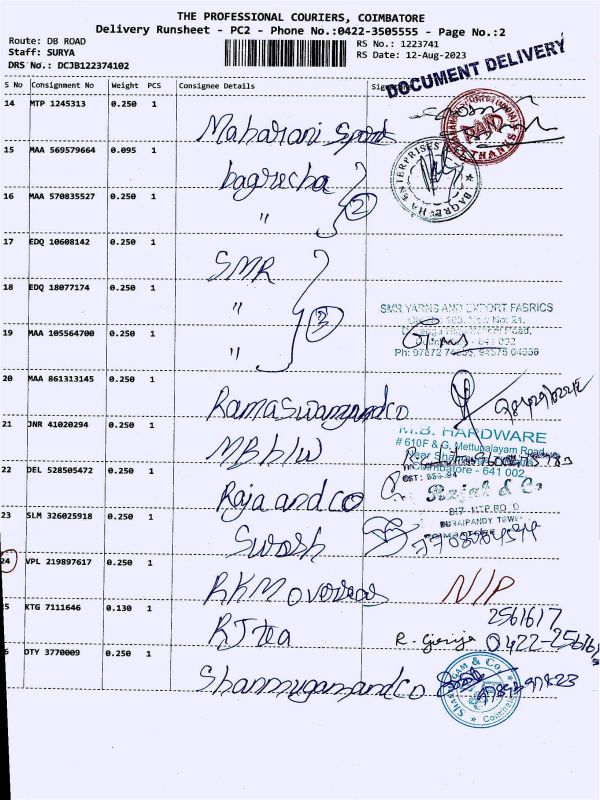 THE PROFESSIONAL COURIERS, COIMBATORE
Delivery Runsheet - PC2 - Phone No.:0422-3505555 - Page No.:2
Route: DB ROAD
Staff: SURYA
DRS No.: DCJB122374102
RS No.: 1223741
RS Date: 12-Aug-2023
DOCUMENT DELIVERY
S No Consignment No Weight PCS Consignee Details
14 MTP 1245313 0.250 1 Maharani
15 MAA 569579664 0.095 1 bagrecha
16 MAA 570835527 0.250 1 " 2
17 EDQ 10608142 0.250 1 SMR
18 EDQ 18077174 0.250 1 "
19 MAA 105564700 0.250 1 " 3
SMR YARNS AND EXPORT FABRICS
20 MAA 861313145 0.250 1 Ramaswamyandco
21 JNR 41020294 0.250 1 MBhlw
M.B. HARDWARE
# 610F & G, Mettupalayam Road
Coimbatore - 641 002
22 DEL 528505472 0.250 1 Raja and co
23 SLM 326025918 0.250 1 Suresh
24 VPL 219897617 0.250 1 RKM overseas N/P
25 KTG 7111646 0.130 1 RJ tea R. Girija
2561617
6 DTY 3770009 0.250 1 Shanmugamandco